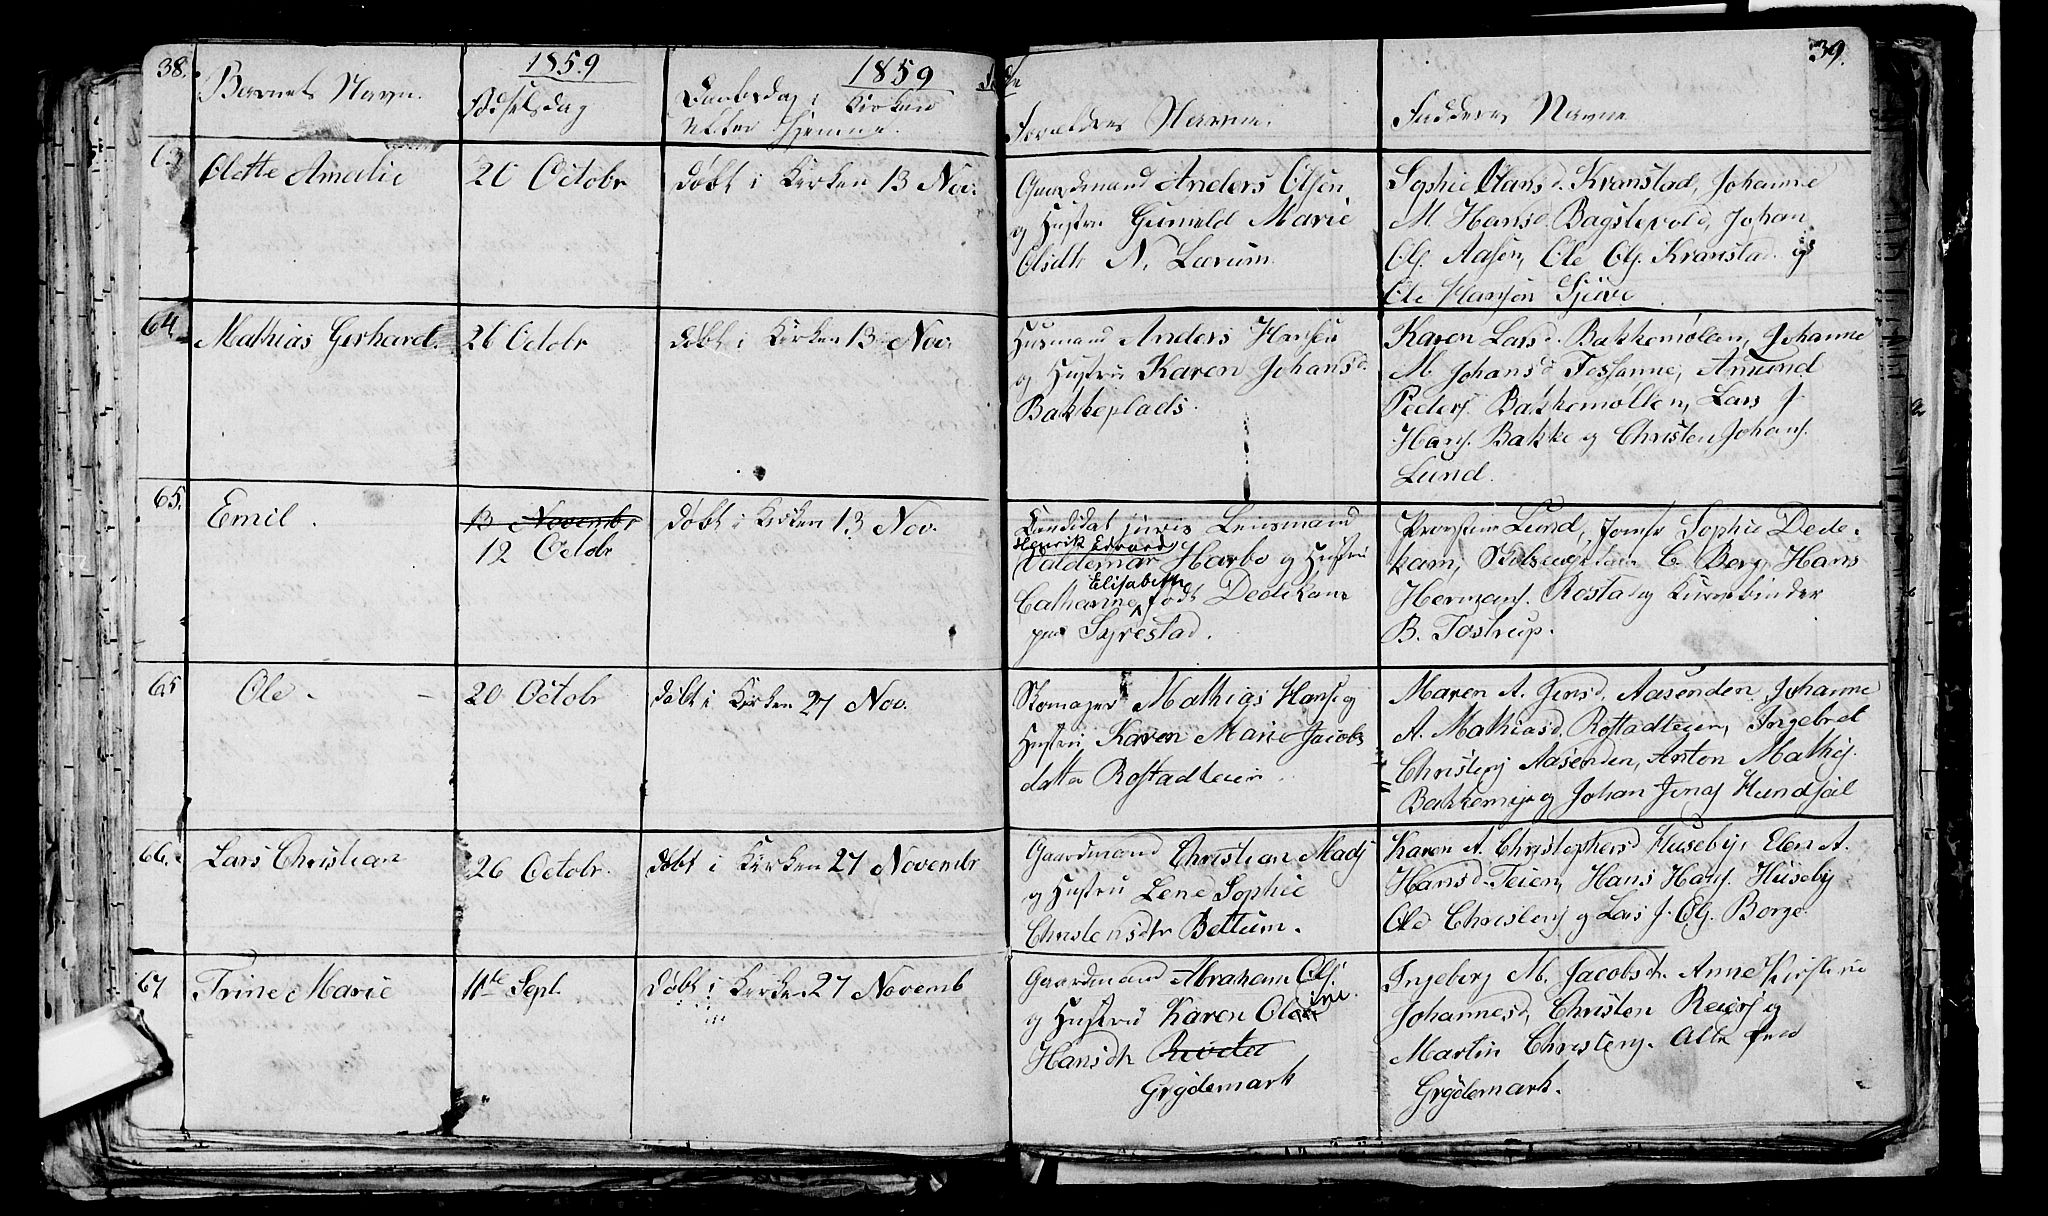 38.
1859
1859
39.
Barnets Navn.
Fødselsdag
Daabsdag i Kirken
eller Hjemme.
Forældres Navne.
Faddernes Navne
63
Olette Amalie
20 Octobr
døbt i Kirken 13 Nov.
Gaardmand Anders Olsen
og Hustru Gunild Marie
Olsdtr N. Lærum
Sophie Hansd. Kranstad, Johanne
M. Hansd. Bagstevold, Johan
Ols. Aasen, Ole Ols. Kranstad og
Ole Hansen
64
Mathias Gerhard.
26 Octobr
døbt i Kirken 13 Nov.
Husmand Anders Hansen
og Hustru Karen Johansd.
Bakkeplads.
Karen Larsd. Bakkemøllen, Johanne
M. Johansd. Fossanne, Amund
Peders. Bakkemøllen, Lars J.
Hans. Bakke og Christen Johans.
Lund.
65.
Emil.
13 Novembr
12 Octobr
døbt i Kirken 13 Nov.
Candidat juris Lensmand
Henrik Edvard
Valdemar Harbo og Hustru
Elisabeth
Catharine født Dedekam
paa Syrestad.
Lund, Jomfr Sophie Dede-
kam, C. Berg, Hans
Hermans. Rostad og
B. Tostrup.
65
Ole.
20 Octobr
døbt i Kirken 27 Nov.
Skomager Mathias Hans. og
Hustru Karen Marie Jacobs
datter Rostadteien.
Maren A. Jensd. Aasenden, Johanne
A. Mathiasd. Rostadteien, Ingebret
Christens. Aasenden, Anton Mathis.
og Johan Jens.
66.
Lars Christian
26 Octobr.
døbt i Kirken 27 Novembr
Gaardmand Christian Mads.
og Hustru Lene Sophie
Christensdtr Bettum.
Karen A. Christophersd Huseby, Elen A.
Hansd. Teien, Hans Hans. Huseby
Ole Christens. og Lars J. Ols. Borge.
67
Trine Marie
11te Sept.
døbt i Kirken 27 Novemb
Gaardmand Abraham Ols.
og Hustru Karen Oleine.
Hansdtr
Grødemark
Ingeborg M. Jacobsdtr. Anne Kirstine
Johannesd, Christen Reiers. og
Martin Christens. Alle fra
Grødemark.